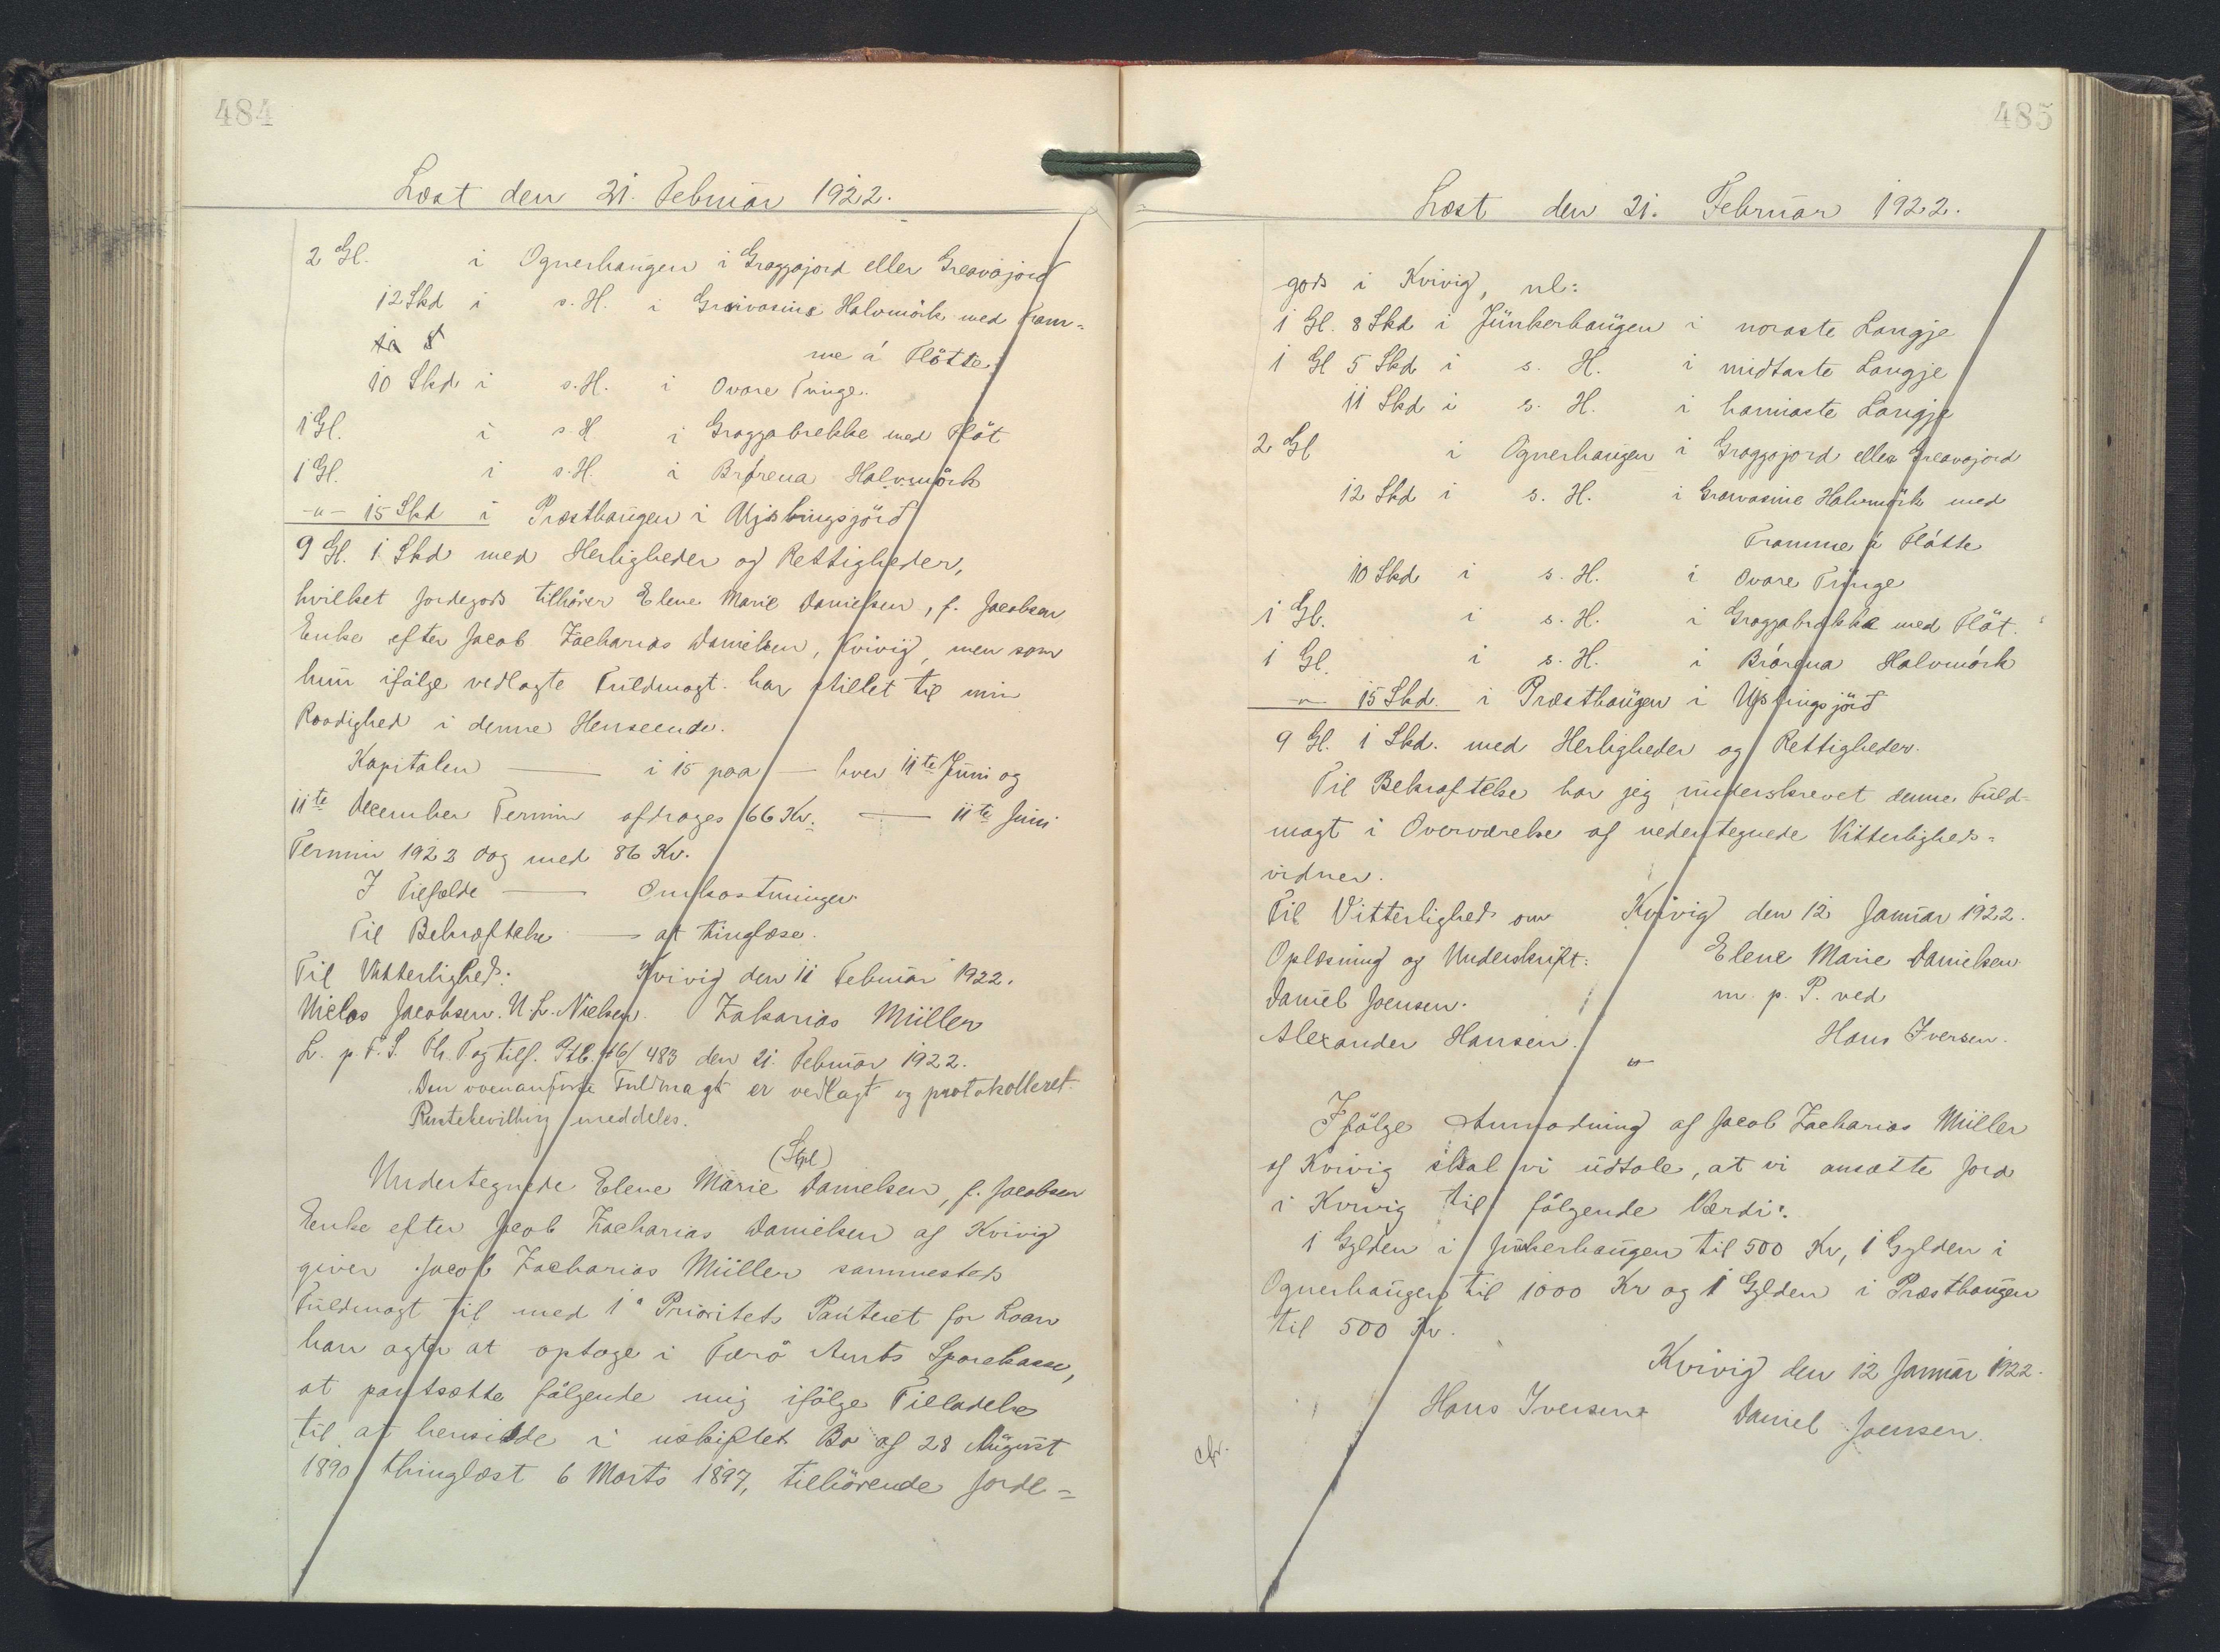 484
Læst den 21. Februar 1922.
2 Gl. i Ognerhaugen i Graggajord eller Greavajord
12 Skd i s. H. i Greivasina Halvmörk med Fram-
me á Flötte.
10 Skd i s. H. i Ovare Tringe.
1 Gl. i s. H i Graggabrekke med Flöt
1 Gl. i s. H. i Brórena Halvmörk
-"- 15 Skd i Præsthaugen i Uppistingsjörd
9 Gl. 1 Skd med Herligheder og Rettigheder,
hvilket Jordegods tilhører Elene Marie Danielsen, f. Jacobsen
Enke efter Jacob Zacharias Danielsen, Kvivig, men som
hun ifølge vedlagte Fuldmagt har stillet til min
Raadighed i denne Henseende.
Kapitalen — i 15 paa — hver 11te Juni og
11te December Termin afdrages 66 Kr. — 11te Juni
Termin 1923 dog med 86 Kr.
I Tilfælde — Omkostninger.
Til Bekræftelse — at tinglæse.
Til Vitterlighed: Kvivig den 11 Februar 1922.
Niclas Jacobsen. N. L. Nielsen. Zakarias Müller
L. p. F. S. Th. T og tilf. Ptb. 483 den 21. Februar 1922.
Den ovenanførte Fuldmagt er vedlagt og protokolleret.
Rentebevilling meddeles.
(Stpl)
Undertegnede Elene Marie Danielsen, f. Jacobsen
Enke efter Jacob Zacharias Danielsen af Kvivig
giver Jacob Zacharias Müller sammesteds
Fuldmagt til med 1ª Prioritets Panteret for Laan
han agter at optage i Færö Amts Sparekasse,
at pantsætte følgende mig ifølge Tilladelse
til at hensidde i uskiftet Bo af 28 August
1890 thinglæst 6 Marts 1897, tilhörende Jorde-
485
Læst den 21. Februar 1922.
gods i Kvivig, nl:
1 Gl. 8 Skd i Junkerhaugen i noraste Langje
1 Gl 5 Skd i s. H. i midtaste Langje
11 Skd i s. H. i hamaste Langje
2 Gl i Ognerhaugen i Graggajord eller Greavajord
12 Skd i s. H. i Greivasine Halvmörk med
Framme á Flótte
10 Skd i s. H. i Ovare Tringe
1 Gl. i s. H. i Graggabrekke med Flöt.
1 Gl. i s. H. i Brórena Halvmórk
-"- 15 Skd. i Præsthaugen i Uppistingsjörd
9 Gl. 1 Skd. med Herligheder og Rettigheder.
Til Bekræftelse har jeg underskrevet denne Fuld-
magt i Overværelse af nedentegnede Vitterligheds-
vidner.
Til Vitterlighed om Kvivig den 12 Januar 1922.
Oplæsning og Underskrift: Elene Marie Danielsen
Daniel Joensen. m. p. P. ved
Alexander Hansen. Hans Iversen.
"
Ifölge Anmodning af Jacob Zacharias Müller
af Kvivig skal vi udtale, at vi ansætte Jord
i Kvivig til fölgende Værdi:
1 Gylden i Junkerhaugen til 500 Kr, 1 Gylden i
Ognerhaugen til 1000 Kr og 1 Gylden i Præsthaugen
til 500 Kr.
Kvivig den 12 Januar 1922.
Hans Iversen. Daniel Joensen.
Cfr.